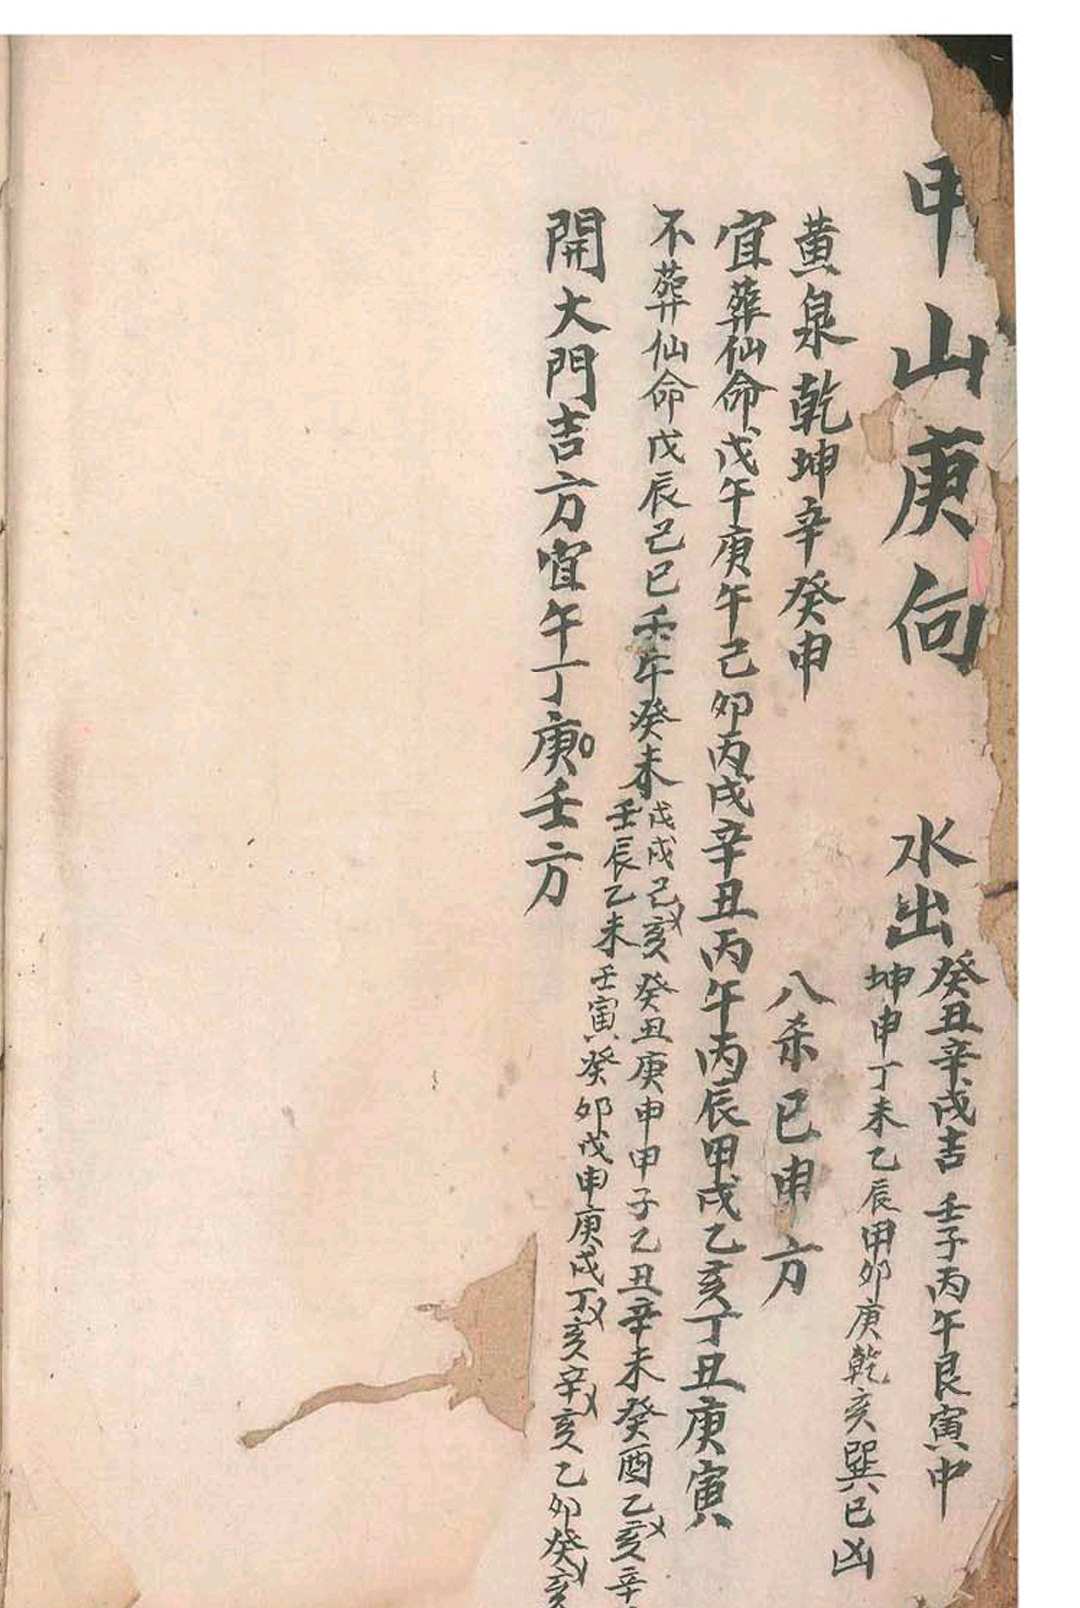 甲山庚向
水出
癸丑辛戌吉 壬子丙午艮寅中
坤申丁未乙辰甲卯庚乾亥巽巳凶
黃泉乾坤辛癸申
八杀巳申方
宜葬仙命戊午庚午己卯丙戌辛丑丙午丙辰甲戌乙亥丁丑庚寅
不葬仙命戊辰己巳壬午癸未
戊戌己亥癸丑庚申甲子乙丑辛未癸酉乙亥辛
壬辰乙未壬寅癸卯戊申庚戌丁亥辛亥乙卯癸亥
開大門吉方宜午丁庚壬方